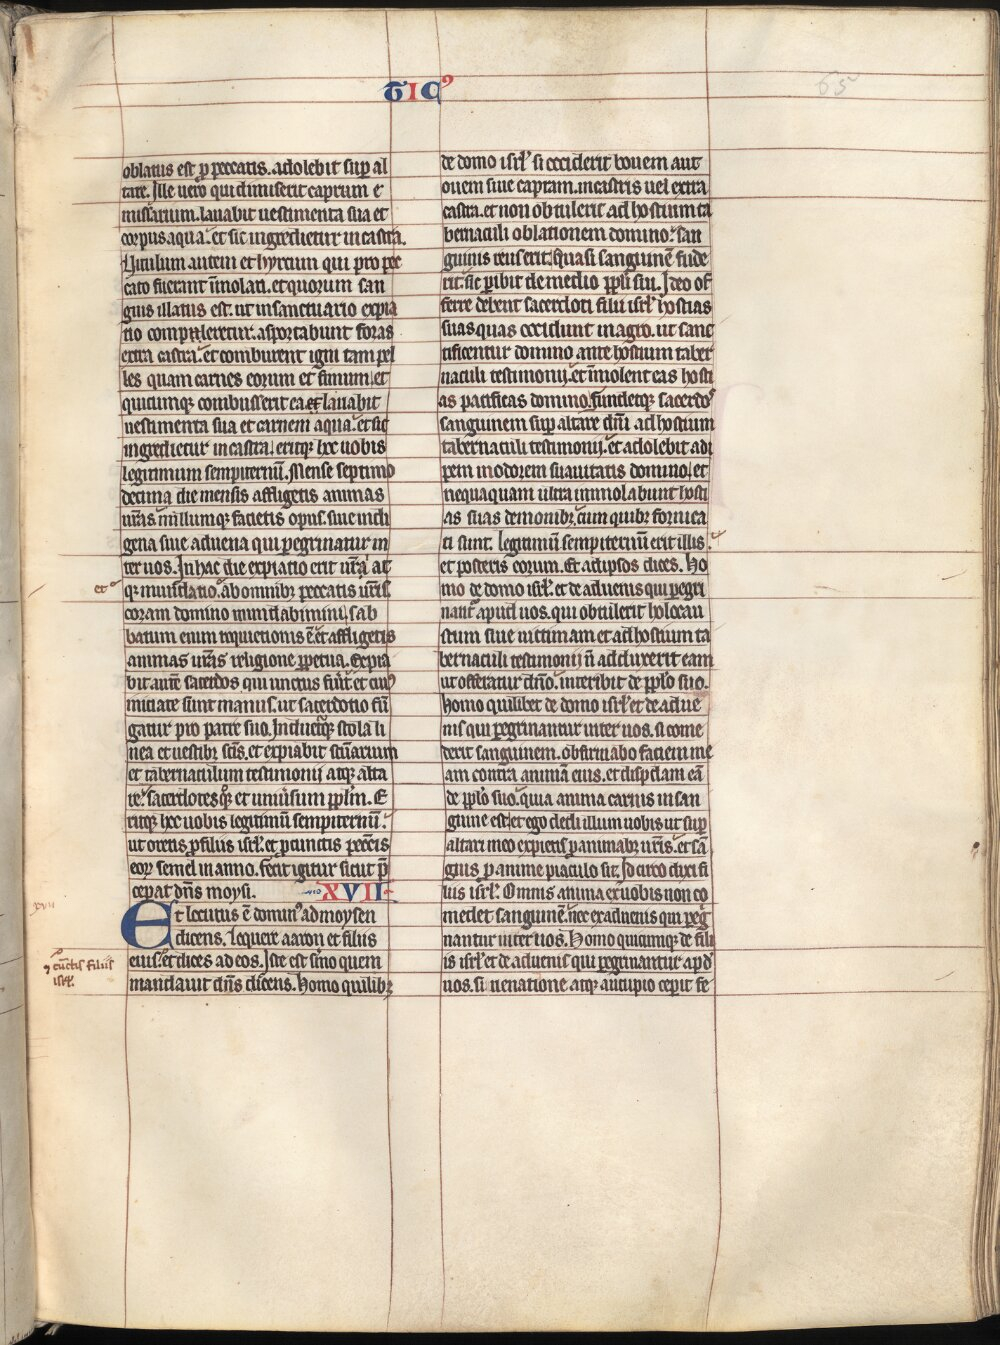 TICꝰ
65
oblatus est ꝑ peccatis. adolebit suꝑ al
tare. Ille uero qui dimiserit caprum e
missarium. lauabit uestimenta sua et
corpus aqua. et sic ingredietur in castra.
Vitulum autem et hyrcum qui pro pec
cato fuerant īmolati. et quorum san
guis illatus est. ut in sanctuario expia
tio compleretur. asportabunt foras
extra castra. et comburent igni tam pel
les quam carnes eorum et fimum. et
quicumqꝫ combusserit ea. et lauabit
uestimenta sua et carnem aqua. et sic
ingredietur in castra. eritqꝫ hec uobis
legitimum sempiternū. Mense septimo
decima die mensis affligetis animas
ur̄as nullumqꝫ facietis opus. siue indi
gena siue aduena qui ꝑegrinatur in
ter uos. In hac die expiatio erit ur̄a at
et
qꝫ mundatio. ab omnibꝫ peccatis ur̄is.
coram domino mundabimini. sab
batum enim requietionis ē et affligetis
animas ur̄as religione ꝑpetua. Expia
bit autē sacerdos qui unctus fuīt et cuiꝰ
initiate sunt manus. ut sacerdotio fū
gatur pro patre suo. Indueturqꝫ stola li
nea et uestibꝫ sc̄is. et expiabit sc̄uarium
et tabernaculum testimonij atqꝫ alta
re. sacerdotes qꝫ et uniūsum ppl̄m. E
ritqꝫ hec uobis legitimū sempiternū.
ut oretis ꝓ filiis isrl̄. et ꝓ cunctis peccīs
eoꝝ semel in anno. fecit igitur sicut p̄
ceperat dn̄s moysi. XVII
xvii
Et locutus ē dominꝰ ad moysen
dicens. loquere aaron et filiis
ꝯ cunctis filiis
isrl̄.
eius. et dices ad eos. Iste est s̄mo quem
mandauit dn̄s dicens. Homo quilibꝫ
de domo isrl̄ si occiderit bouem aut
ouem siue capram. in castris uel extra
castra. et non obtulerit ad hostium ta
bernaculi oblationem domino. san
guinis reus erit. quasi sanguinē fude
rit. sic ꝑibit de medio ppl̄i sui. Ideo of
ferre debent sacerdoti filii isrl̄ hostias
suas quas occidunt in agro. ut sanc
tificentur domino ante hostium taber
naculi testimonij. et īmolent eas hosti
as pacificas domino. fundetqꝫ sacerdoˢ
sanguinem suꝑ altare dn̄i ad hostium
tabernaculi testimonij. et adolebit adi
pem in odorem suauitatis domino. et
nequaquam ultra immolabunt hosti
as suas demonibꝫ cum quibꝫ fornica
ti sunt. legitimū sempiternū erit illis.
et posteris eorum. Et ad ipsos dices. Ho
mo de domo isrl̄. et de aduenis qui ꝑegri
nant᷑ apud uos. qui obtulerit holocau
stum siue uictimam et ad hostium ta
bernaculi testimonij n̄ adduxerit eam
ut offeratur dn̄o. interibit de ppl̄o suo.
Homo quilibet de domo isrl̄ et de adue
nis qui ꝑegrinantur inter uos. si come
derit sanguinem. obfirmabo faciem me
am contra animā eius. et disꝑdam eā
de ppl̄o suo. quia anima carnis in san
guine est. et ego dedi illum uobis ut suꝑ
altari meo expietis ꝑ animabꝫ ur̄is. et sā
guis ꝑ anime piaculo sit. Idcirco dixi fi
liis isrl̄. Omnis anima ex uobis non co
medet sanguinē. nec ex aduenis qui ꝑeg̊
nantur inter uos. Homo quicumqꝫ de fili
is isrl̄ et de aduenis qui ꝑegrinantur apd̓
uos. si uenatione atqꝫ aucupio ceperit fe